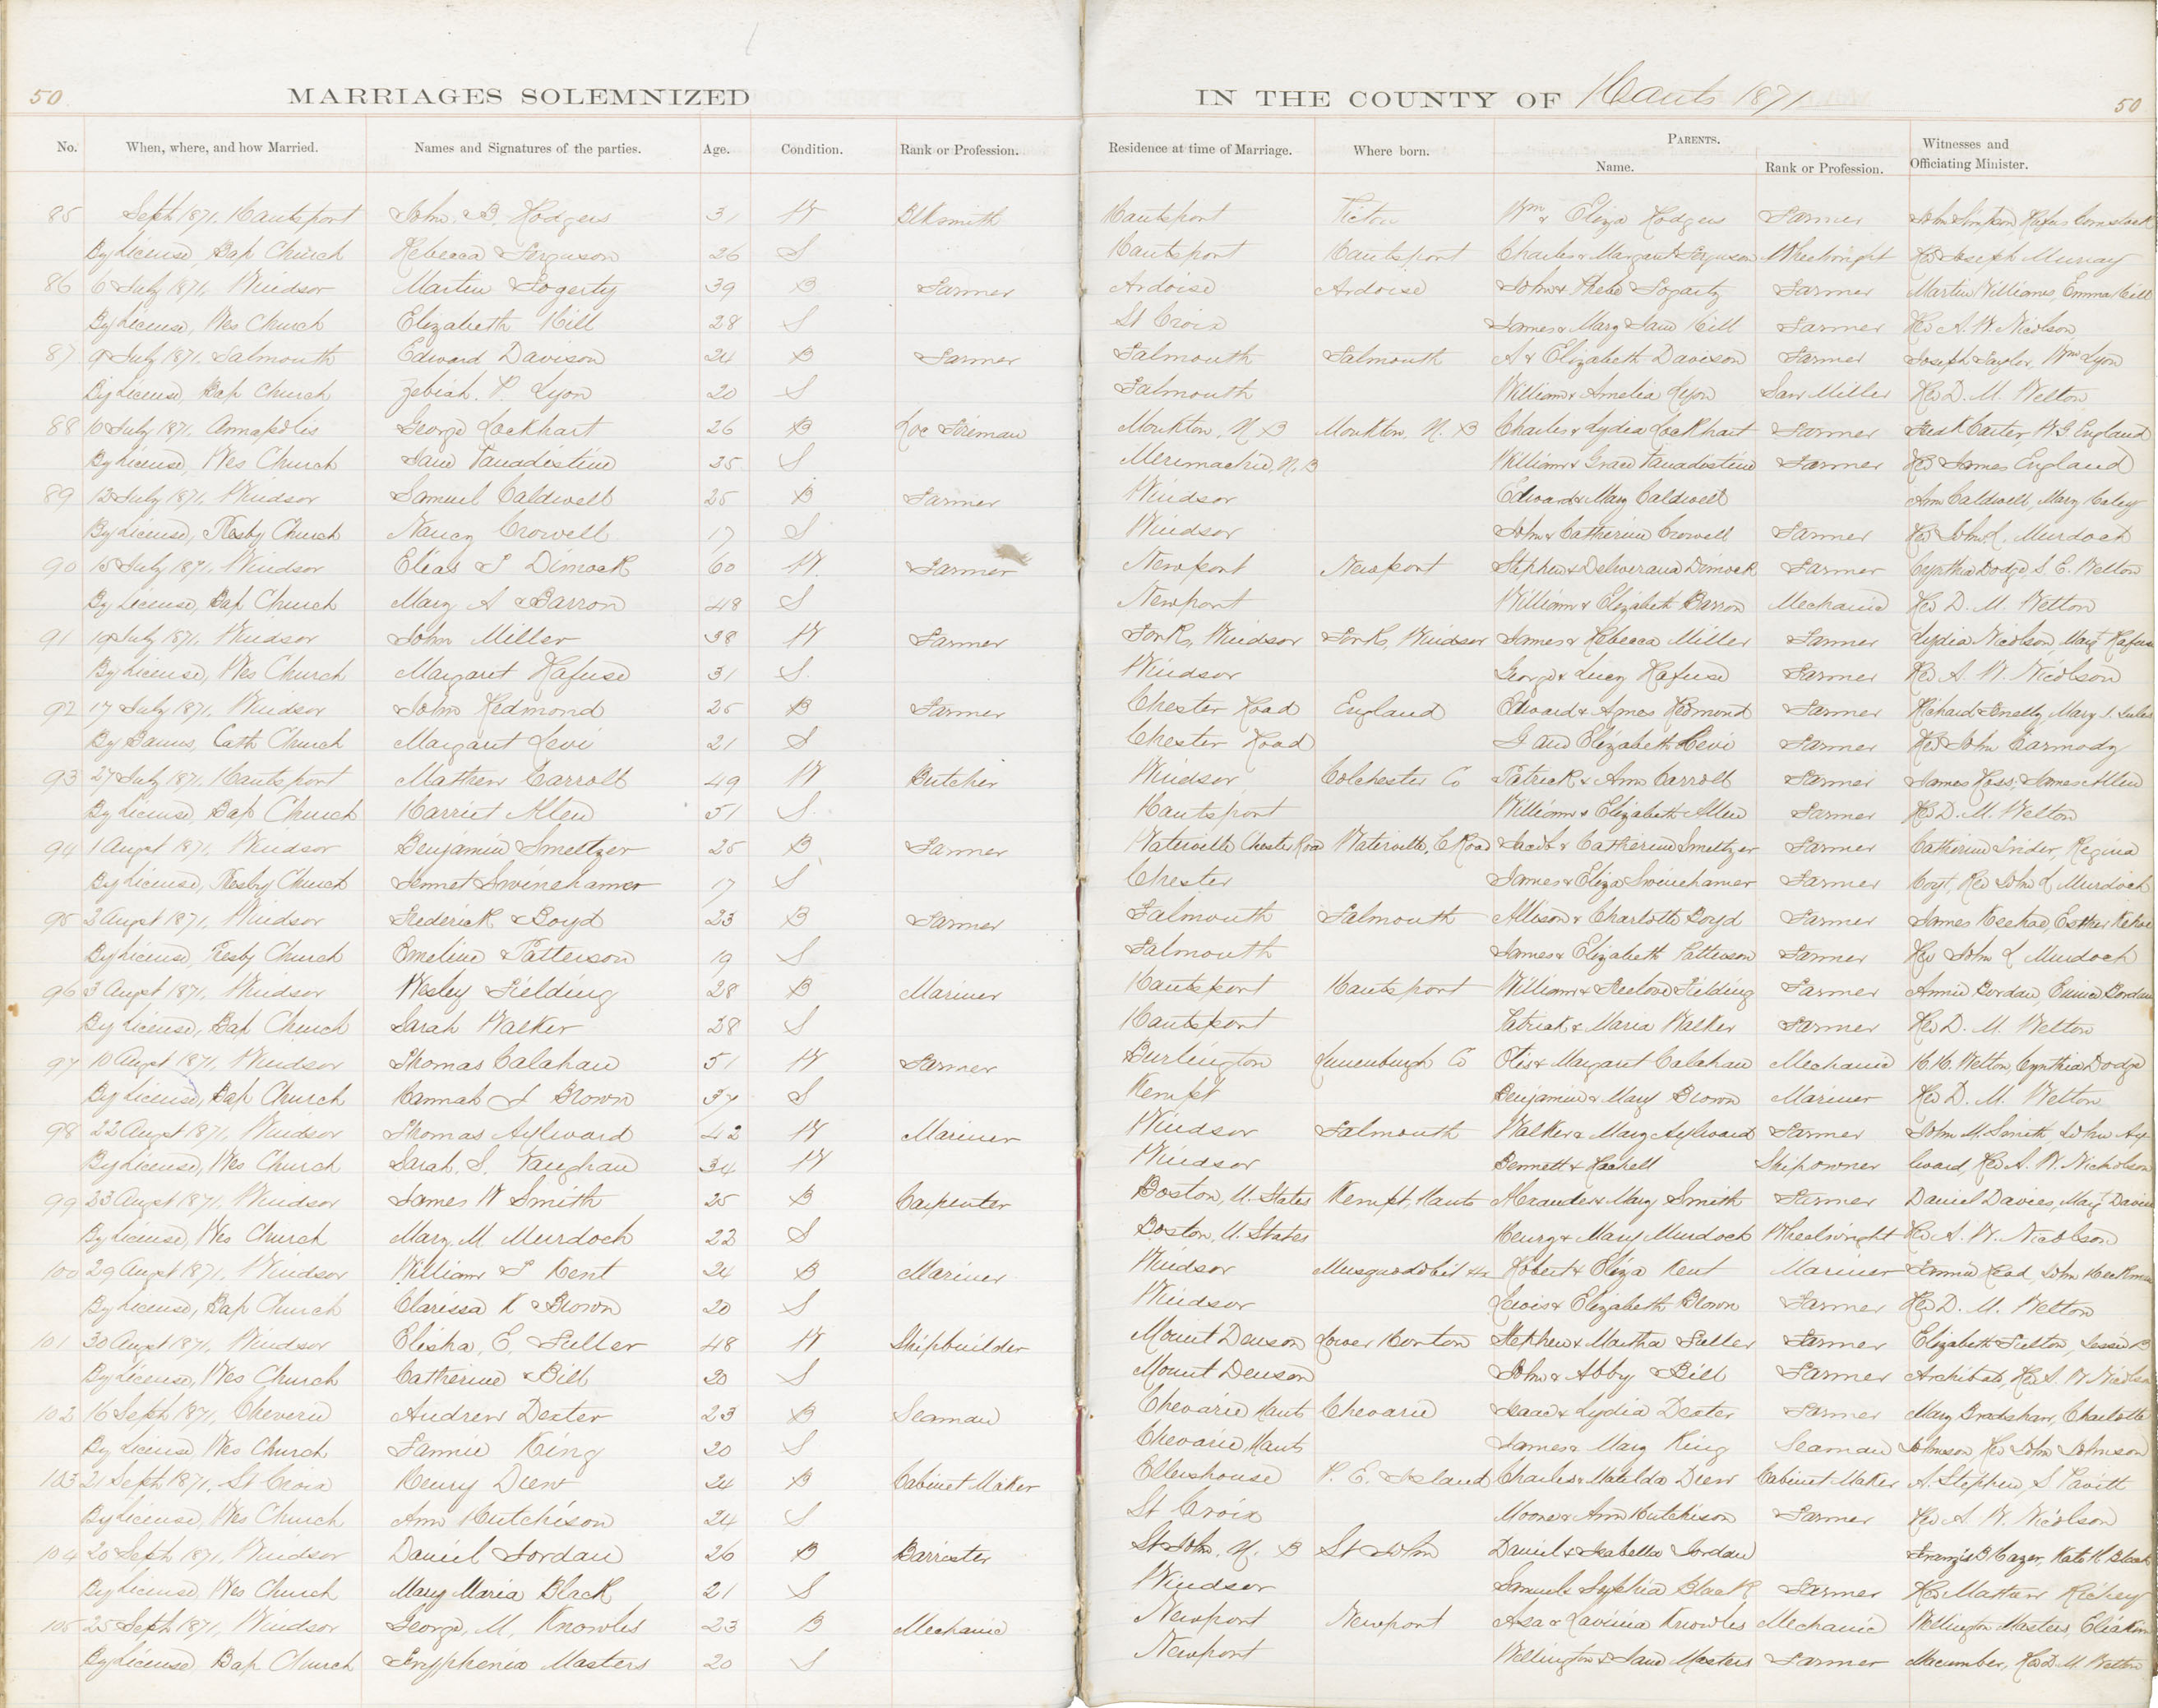 50
MARRIAGES SOLEMNIZED
IN THE COUNTY OF Hants 1871
50
No. When, where, and how Married. Names and Signatures of the parties. Age. Condition. Rank or Profession. Residence at time of Marriage. Where born. PARENTS. Name. Rank or Profession. Witnesses and Officiating Minister.
85 Septh 1871, Hantsport John B. Rodgers 31 W Blksmith Hantsport Pictou Wm & Eliza Rodgers Farmer John Simpson Rufus Comstock
By License, Bap Church Rebecca Ferguson 26 S Hantsport Hantsport Charles & Margaret Ferguson Wheelwright Rev Joseph Murray
86 6 July 1871, Windsor Martin Fogerty 39 B Farmer Ardoise Ardoise John & Phebe Fogarty Farmer Martin Williams, Emma Hill
By License, Wes Church Elizabeth Hill 28 S St Croix James & Mary Jane Hill Farmer Rev A. W. Nicolson
87 9 July 1871, Falmouth Edward Davison 24 B Farmer Falmouth Falmouth A & Elizabeth Davison Farmer Joseph Taylor, Wm Lyon
By License, Bap Church Zebiah. P. Lyon 20 S Falmouth William & Amelia Lyon Saw Miller Rev D. M. Welton
88 10 July 1871, Annapolis George Lockhart 26 B Loc Fireman Monkton, N. B Monkton, N. B Charles & Lydia Lockhart Farmer Fred K Carter, W. G England
By License, Wes Church Jane Vanadestine 25 S Merimachie, N. B William & Grace Vanadestine Farmer Rev James England
89 12 July 1871, Windsor Samuel Caldwell 25 B Farmer Windsor Edward & Mary Caldwell Ann Caldwell, Mary Caley
By License, Presby Church Nancy Crowell 17 S Windsor John & Catherine Crowell Farmer Rev John L. Murdoch
90 15 July 1871, Windsor Elias S Dimock 60 W. Farmer Newport Newport Stephen & Deliverance Dimock Farmer Cynthia Dodge, S. E. Welton
By License, Bap Church Mary A Barron 48 S Newport William & Elizabeth Barron Mechanic Rev D. M. Welton
91 19 July 1871, Windsor John Miller 38 W Farmer Forks, Windsor Forks, Windsor James & Rebecca Miller Farmer Lydia Nicolson, Margt Rafuse
By License, Wes Church Margaret Rafuse 31 S Windsor George & Lucy Rafuse Farmer Rev A. W. Nicolson
92 17 July 1871, Windsor John Redmond 25 B Farmer Chester Road England Edward & Agnes Redmond Farmer Richard Mary J.
By Banns, Cath Church Margaret Levi 21 S Chester Road G and Elizabeth Levi Farmer Rev John Carmody
93 27 July 1871, Hantsport Mathew Carroll 49 W Butcher Windsor Colchester Co Patrick & Ann Carroll Farmer James Ross, James Allen
By License Bap Church Harriet Allen 51 S Hantsport William & Elizabeth Allen Farmer Rev D. M. Welton
94 1 Augst 1871, Windsor Benjamin Smeltzer 25 B Farmer Waterville Chester Road Waterville, C Road Jacob & Catherine Smeltzer Farmer Catherine Snider, Regina
By License, Presby Church Jennet Swinehamer 17 S Chester James & Eliza Swinehamer Farmer Rev John L Murdoch
95 2 Augst 1871, Windsor Frederick Boyd 23 B Farmer Falmouth Falmouth Allison & Charlotte Boyd Farmer James Keehoe, Esther Kehoe
By License, Presby Church Emeline Patterson 19 S Falmouth James & Elizabeth Patterson Farmer Rev John L Murdoch
96 3 Augst 1871, Windsor Wesley Fielding 28 B Mariner Hantsport Hantsport William & Freelove Fielding Farmer Annie Bordan, Eunice Bordan
By License, Bap Church Sarah Walker 28 S Hantsport Patrick & Maria Walker Farmer Rev D. M. Welton
97 10 Augst 1871, Windsor Thomas Calahan 51 W Farmer Burlington Lunenburgh Co Otis & Margaret Calahan Mechanic H. H. Welton, Cynthia Dodge
By License, Bap Church Hannah J Brown 37 S Kempt Benjamin & Mary Brown Mariner Rev D. M. Welton
98 22 Augst 1871, Windsor Thomas Aylward 42 W Mariner Windsor Falmouth Walker & Mary Aylward Farmer John M. Smith, John Ayl-
By License, Wes Church Sarah. S. Vaughan 34 W Windsor Bennett & Rachell Shipowner ward, Rev A. W. Nicholson
99 23 Augst 1871, Windsor James W Smith 25 B Carpenter Boston, U. States Kempt, Hants Alexander & Mary Smith Farmer Daniel Davies, Mary Davies
By License, Wes Church Mary. M Murdoch 22 S Boston, U. States Henry & Mary Murdoch Wheelwright Rev A. W. Nicolson
100 29 Augst 1871, Windsor William S Kent 24 B Mariner Windsor Musquodobit Hx Robert & Eliza Kent Mariner Read, John
By License, Bap Church Clarissa K Brown 20 S Windsor Lewis & Elizabeth Brown Farmer Rev D. M. Welton
101 30 Augst 1871, Windsor Elisha. E. Fuller 48 W Shipbuilder Mount Denson Lower Horton Stephen & Martha Fuller Farmer Elizabeth Fulton, Jessie B
By License, Wes Church Catherine Bill 30 S Mount Denson John & Abby Bill Farmer Archibald, Rev A. W Nicolson
102 16 Septh 1871, Cheverie Andrew Dexter 23 B Seaman Chevarie Hants Chevarie Isaac & Lydia Dexter Farmer Mary Bradshaw, Charlotte
By License Wes Church Fannie King 20 S Chevarie Hants James & Mary King Seaman Johnson, Rev John Johnson
103 21 Septh 1871, St Croix Henry Drew 24 B Cabinet Maker Ellershouse P. E. Island Charles & Matilda Drew Cabinet Maker A. Stephen, S Pavitt
By License, Wes Church Ann Hutchison 24 S St Croix Moore & Ann Hutchison Farmer Rev A. W. Nicolson
104 20 Septh 1871, Windsor Daniel Jordan 26 B Barrister St John, N. B St John Daniel & Isabella Jordan Francis B Hazen, Kate H Black
By License, Wes Church Mary Maria Black 21 S Windsor Samuel & Sophia Black Farmer Rev Mathew Richey
105 25 Septh 1871, Windsor George, M, Knowles 23 B Mechanic Newport Newport Asa & Lavinia Knowles Mechanic Wellington Masters, Eliakim
By License, Bap Church Tryphenia Masters 20 S Newport Wellington & Jane Masters Farmer Macumber, Rev D. M. Welton